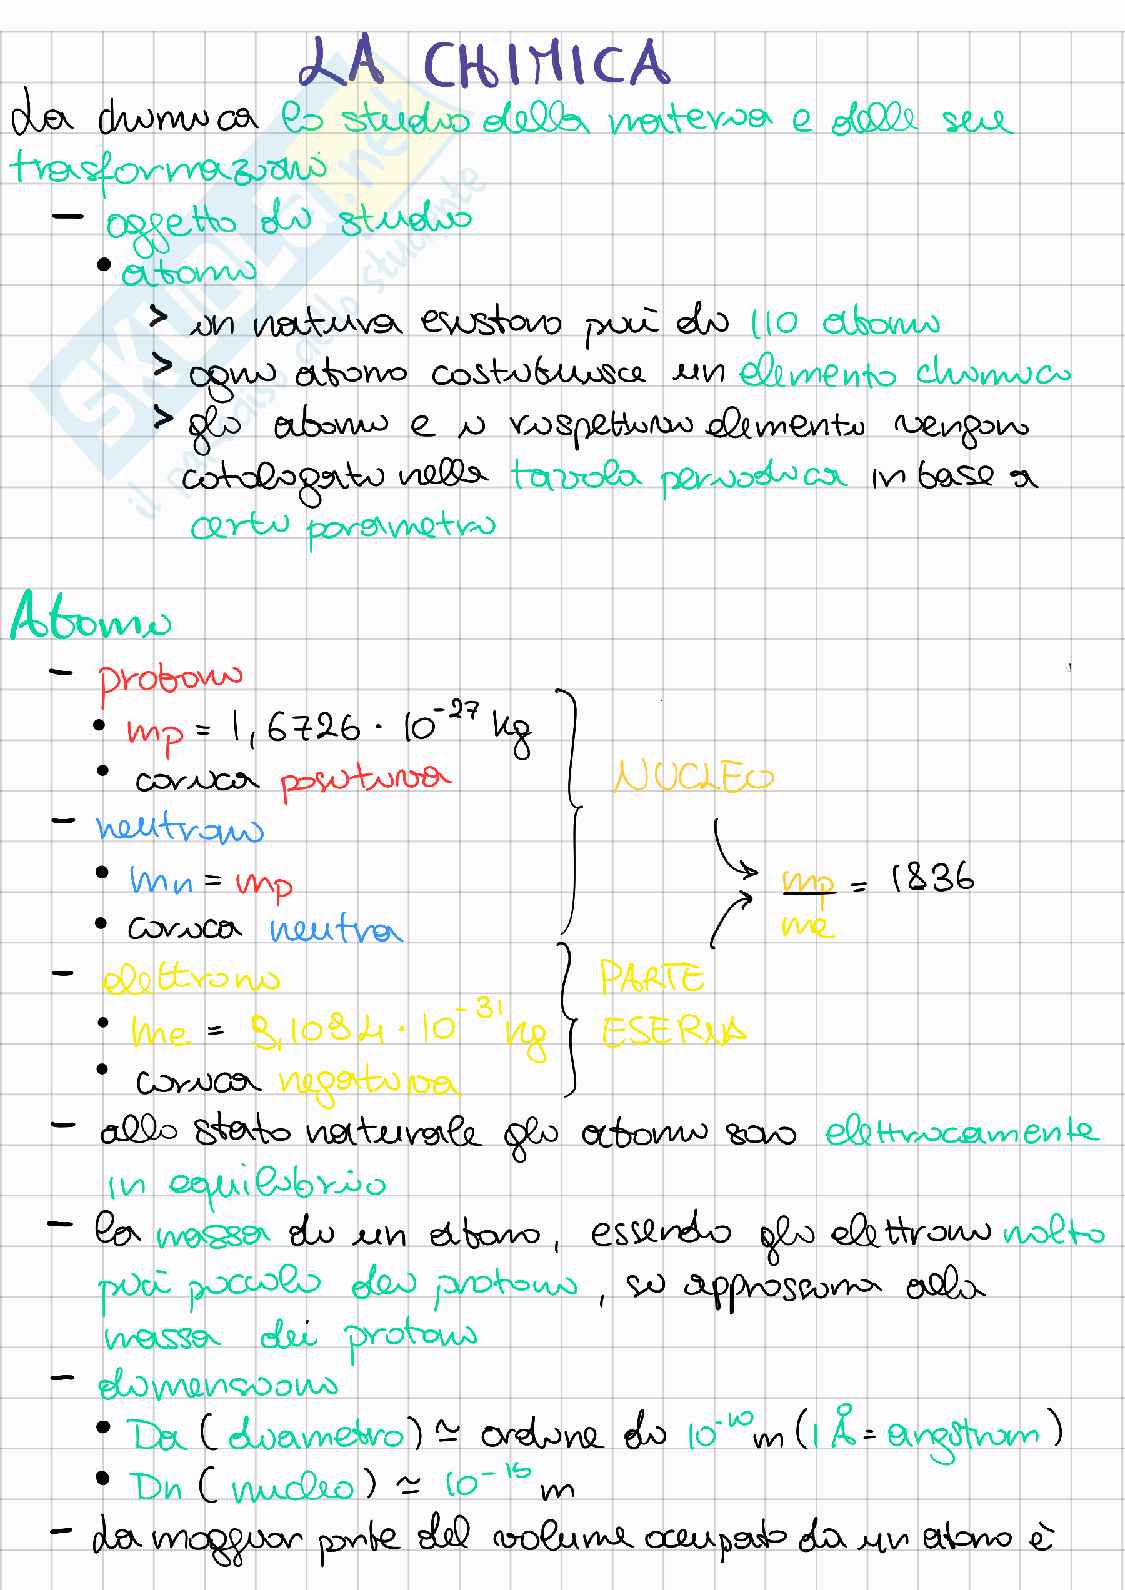 LA CHIMICA
La chimica lo studio della materia e delle sue
trasformazioni
- oggetto di studio
• atomi
> in natura esistono più di 110 atomi
> ogni atomo costituisce un elemento chimico
> gli atomi e i rispettivi elementi vengono
catalogati nella tavola periodica in base a
certi parametri
Atomi
- protoni
• mp = 1,6726 · 10⁻²⁷ kg
• carica positiva
NUCLEO
- neutroni
• mn = mp
mp/me = 1836
• carica neutra
- elettroni
PARTE
• me = 9,1094 · 10⁻³¹ kg
ESERNA
• carica negativa
- allo stato naturale gli atomi sono elettricamente
in equilibrio
- la massa di un atomo, essendo gli elettroni molto
più piccoli dei protoni, si approssima alla
massa dei protoni
- dimensioni
• Da (diametro) ≃ ordine di 10⁻¹⁰ m (1 Å = angstrom)
• Dn (nucleo) ≃ 10⁻¹⁵ m
- La maggior parte del volume occupato da un atomo è
SKUOLA.net
il paradiso dello studente